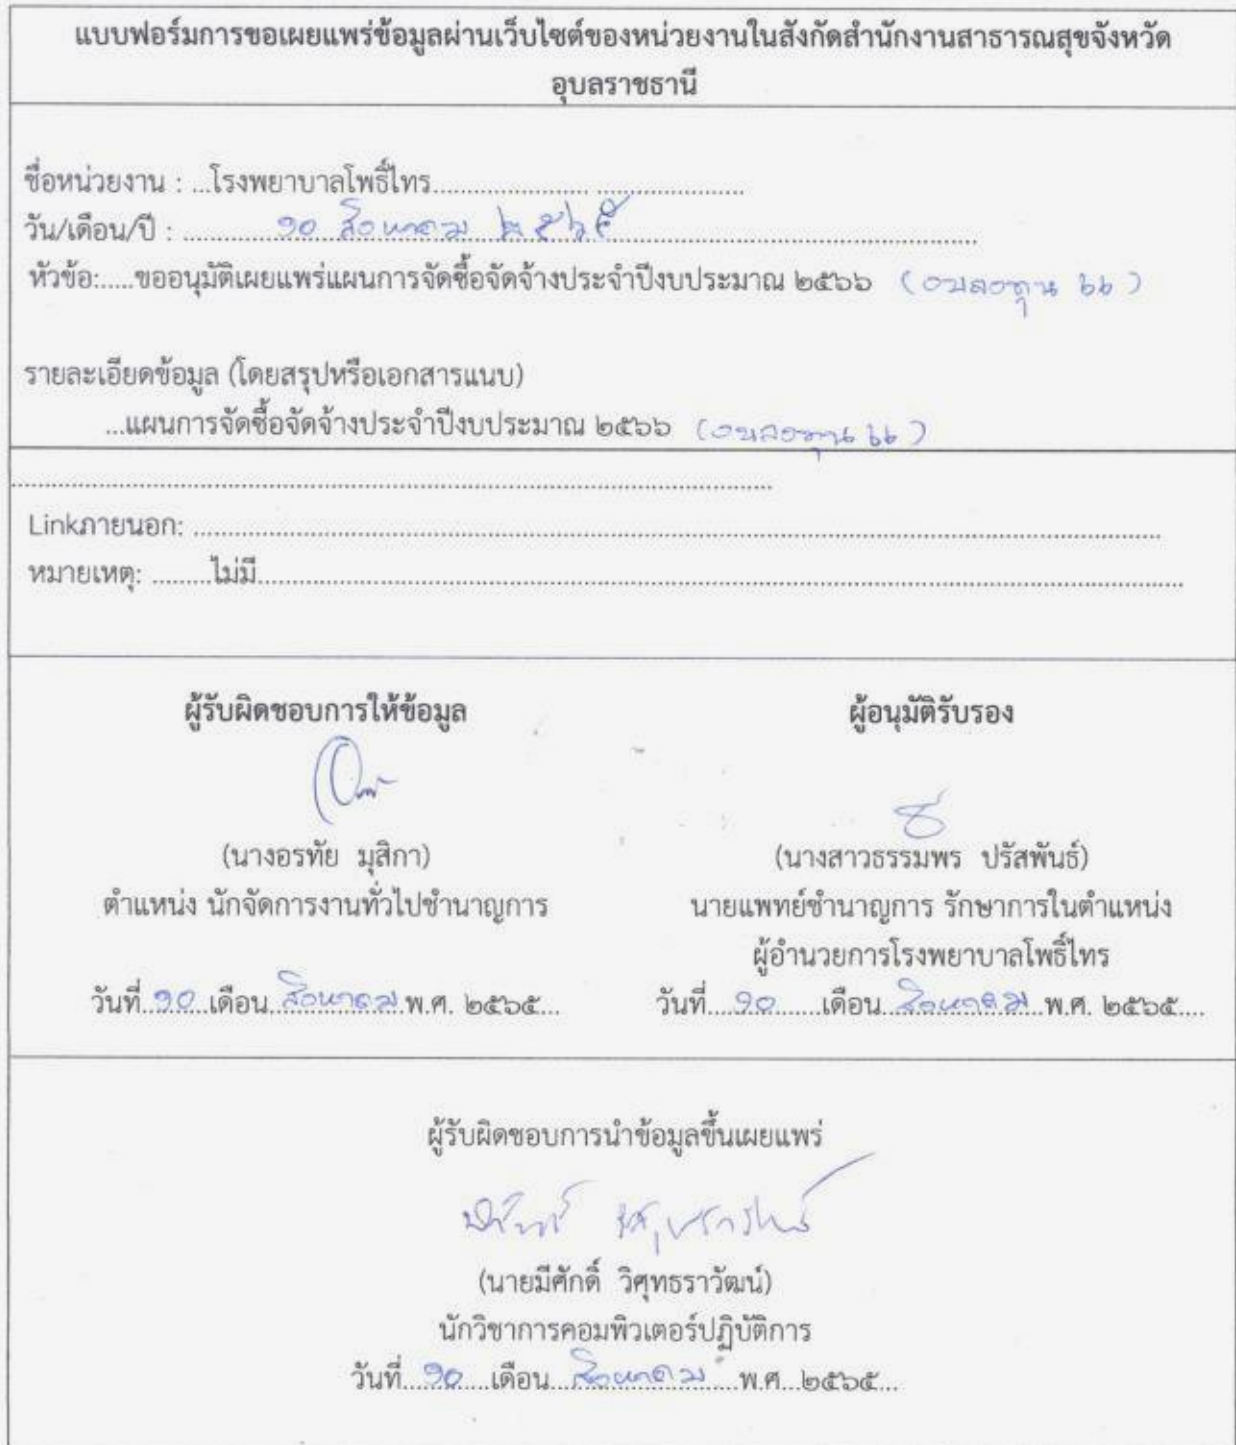 แบบฟอร์มการขอเผยแพร่ข้อมูลผ่านเว็บไซต์ของหน่วยงานในสังกัดสำนักงานสาธารณสุขจังหวัด
อุบลราชธานี
ชื่อหน่วยงาน : ...โรงพยาบาลโพธิ์ไทร...........................................
วัน/เดือน/ปี : ................๑๐ สิงหาคม ๒๕๖๕................................
หัวข้อ:.....ขออนุมัติเผยแพร่แผนการจัดซื้อจัดจ้างประจำปีงบประมาณ ๒๕๖๖ (งบลงทุน ๖๖)
รายละเอียดข้อมูล (โดยสรุปหรือเอกสารแนบ)
...แผนการจัดซื้อจัดจ้างประจำปีงบประมาณ ๒๕๖๖ (งบลงทุน ๖๖)
Linkภายนอก: ................................................
หมายเหตุ: .........ไม่มี................................................
ผู้รับผิดชอบการให้ข้อมูล ผู้อนุมัติรับรอง
(นางอรทัย มุสิกา) (นางสาวธรรมพร ปรัสพันธ์)
ตำแหน่ง นักจัดการงานทั่วไปชำนาญการ นายแพทย์ชำนาญการ รักษาการในตำแหน่ง
ผู้อำนวยการโรงพยาบาลโพธิ์ไทร
วันที่..๑๐...เดือน..สิงหาคม..พ.ศ. ๒๕๖๕... วันที่....๑๐.......เดือน..สิงหาคม...พ.ศ. ๒๕๖๕....
ผู้รับผิดชอบการนำข้อมูลขึ้นเผยแพร่
(นายมีศักดิ์ วิศุทธราวัฒน์)
นักวิชาการคอมพิวเตอร์ปฏิบัติการ
วันที่...๑๐....เดือน...สิงหาคม....พ.ศ...๒๕๖๕...